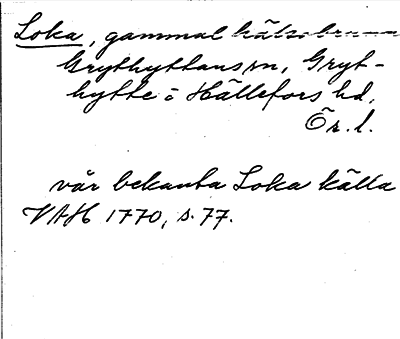 Loka, gammal hälsobrunn
Grythyttans sn, Gryt-
hytte o Hällefors hd,
Ör. l.
vår bekanta Loka källa
VAH 1770, s. 77.